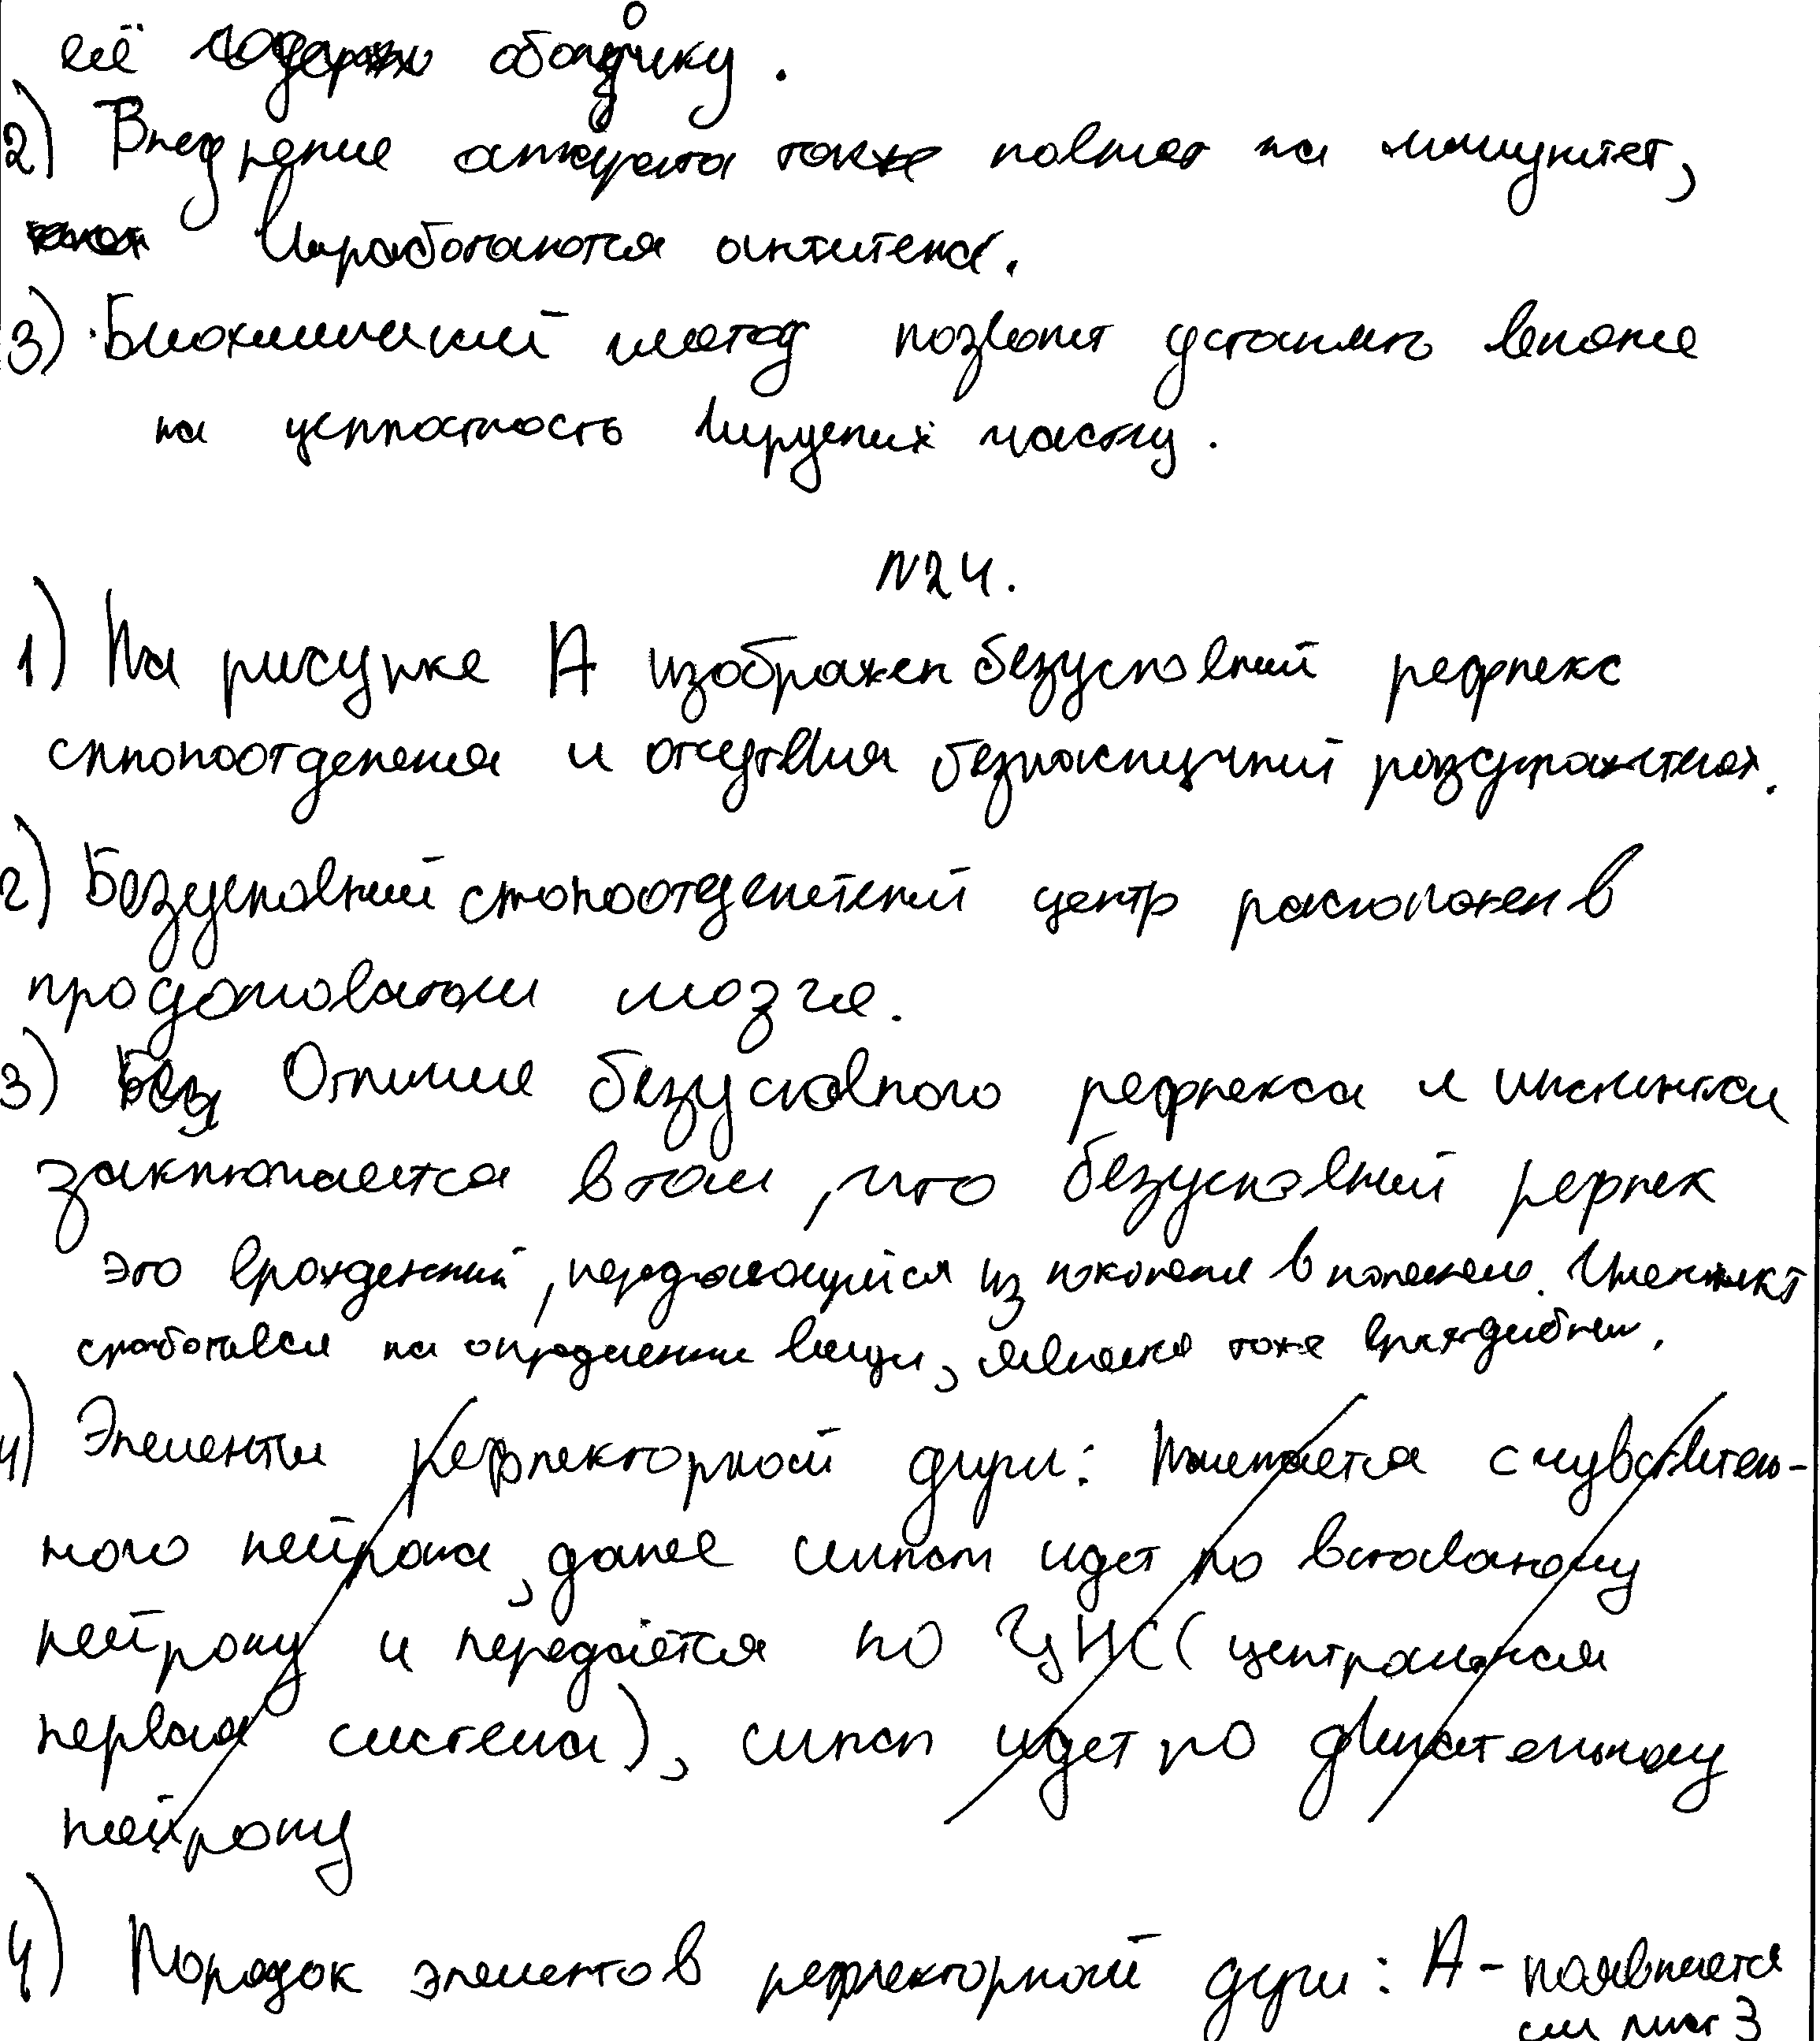 её оболочку.
2) Внедрение также повлияет на иммунитет,
вырабатываются антитела.
3) Биохимический метод позволит установить влияние
на целостность вирусных частиц.
№24.
1) На рисунке А изображен безусловный рефлекс
слюноотделения и отсутствия безразличный раздражитель.
2) Безусловный слюноотделительный центр расположен в
продолговатом мозге.
3) Отличие безусловного рефлекса и инстинкта
заключается в том, что безусловный рефлек
это врожденный, передающийся из поколения в поколение. Инстинкт
на определенные вещи, тоже врожденным.
4) Элементы рефлекторной дуги: начинается с чувствитель-
ного нейрона, далее сигнал идет по вставочному
нейрону и передаётся по ЦНС (центральная
нервная система), сигнал идет по двигательному
нейрону
4) Порядок элементов рефлекторной дуги: А - появляется
см лист 3